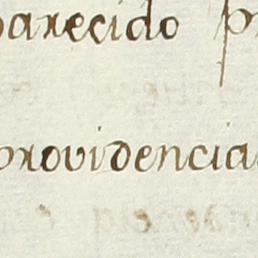 parecido p
providencia